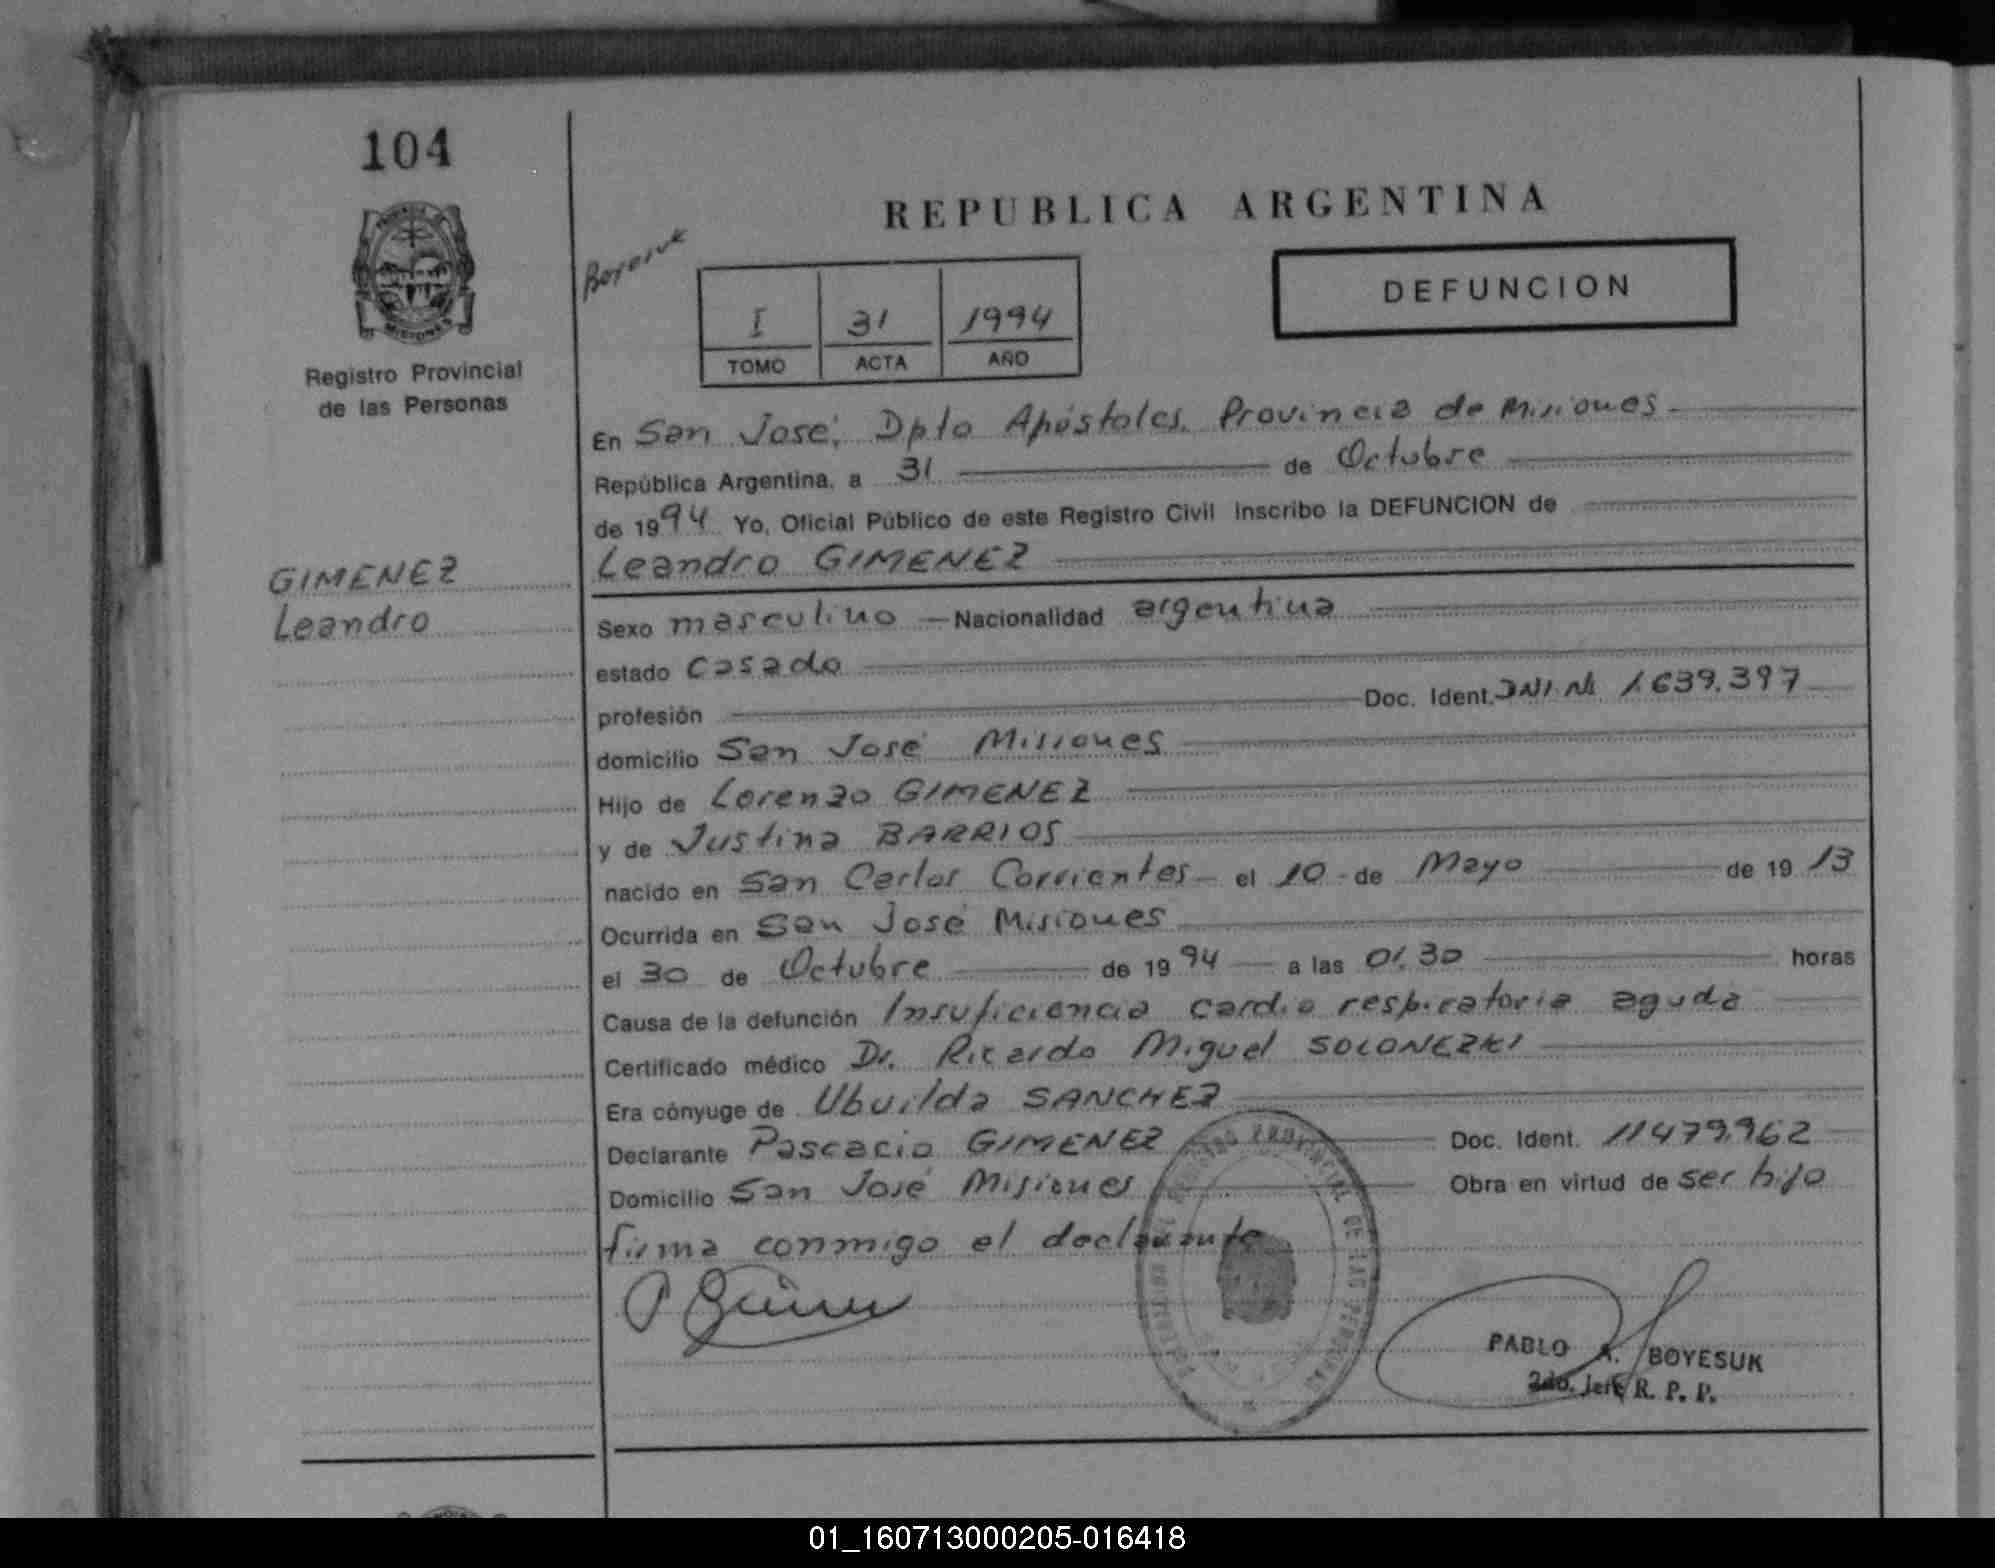 104
REPUBLICA ARGENTINA
DEFUNCION
I 31 1994
TOMO ACTA AÑO
MISIONES
Registro Provincial
de las Personas
En San José, Dpto Apóstoles. Provincia de Misiones
República Argentina, a 31 de Octubre
de 1994 Yo, Oficial Público de este Registro Civil inscribo la DEFUNCION de
GIMENEZ
Leandro
Leandro GIMENEZ
Sexo masculino - Nacionalidad argentina
estado Casado
profesión Doc. Ident. DNI. Nº 1.639.397
domicilio San José Misiones
Hijo de Lorenzo GIMENEZ
y de Justina BARRIOS
nacido en San Carlos Corrientes - el 10 - de Mayo de 1913
Ocurrida en San José Misiones
el 30 de Octubre de 1994 a las 01.30 horas
Causa de la defunción Insuficiencia cardio respiratoria aguda
Certificado médico Dr. Ricardo Miguel SOLONEZKI
Era cónyuge de Ubuilda SANCHEZ
Declarante Pascacio GIMENEZ Doc. Ident. 11479.962
Domicilio San José Misiones Obra en virtud de ser hijo
firma conmigo el declarante
REGISTRO PROVINCIAL DE LAS PERSONAS
PABLO A. BOYESUK
2do. Jefe R. P. P.
01_160713000205-016418